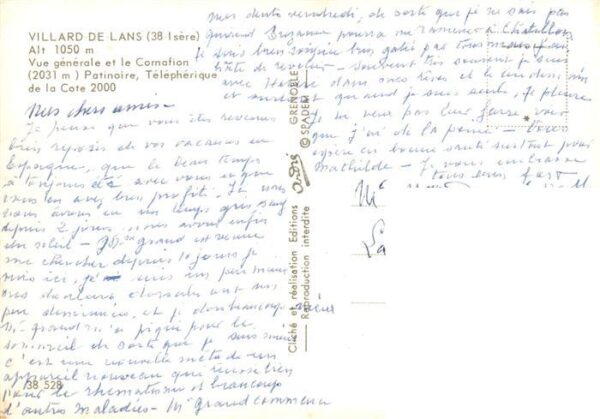 VILLARD DE LANS (38 Isère)
Alt 1050 m
Vue générale et le Cornafion
(2031 m) Patinoire, Téléphérique
de la Cote 2000
Mes chers amis -
Je pense que vous êtes revenus
bien reposés de vos vacances en
Espagne, que le beau temps
a toujours été avec vous et que
vous en avez bien profité. Ici nous
avons eu un temps gris sauf
depuis 2 jours, nous avons enfin
du soleil - grand est venue
me chercher depuis 10 jours je
suis ici, je suis un peu mieux
mes douleurs dorsales ont un
peu diminuées, et je dors beaucoup mieux
grand m'a piqué pour le
sommeil de sorte que je suis mieux
c'est une nouvelle méthode un
appareil nouveau que
pour le rhumatisme et beaucoup
d'autres maladies - Mr Grand commence
mes dents vendredi, de sorte que je ne sais pas
quand Suzanne pourra me ramener à Chatillon
Je suis bien soignée bien gâtée par tous mais
hâte de revenir - souvent très souvent je suis
avec dans mes rêves et le
et surtout quand je suis seule, je pleure
je ne veux pas leur faire voir
que j'ai de la peine - Vous
espère en bonne santé surtout pour
Mathilde - Je vous embrasse
tous bien fort
Mc
La
Cliché et réalisation Editions André GRENOBLE
Reproduction interdite © SPADEM
38 528